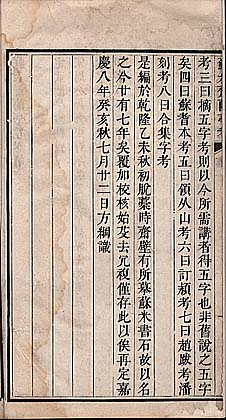 考三曰損五字考則以今所需講者得五字也非舊說之五字
矣四曰蘇耆本考五曰領从山考六曰訂潁考七曰趙跋考潘
刻考八曰合集字考
是編於乾隆乙未秋初脫藁時齋壁有所摹蘇米書石故以名
之今廿有七年矣覆加校核始芟去宂複僅存此以俟再定嘉
慶八年癸亥秋七月廿二日方綱識